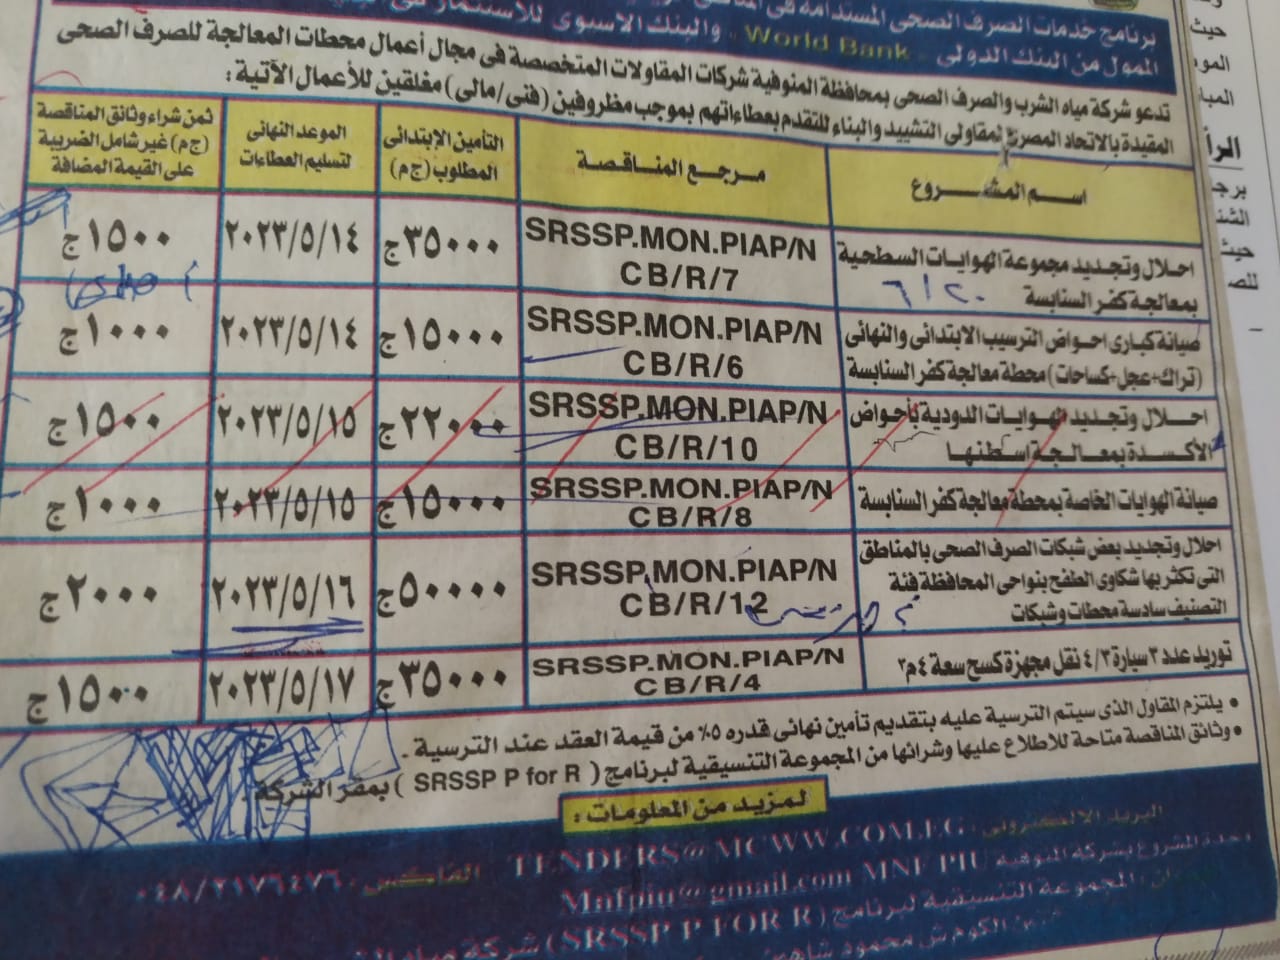 برنامج خدمات الصرف الصحى المستدامة فى
الممول من البنك الدولى - World Bank ، والبنك الآسيوى للاستثمار فى
تدعو شركة مياه الشرب والصرف الصحى بمحافظة المنوفية شركات المقاولات المتخصصة فى مجال أعمال محطات المعالجة للصرف الصحى
المقيدة بالاتحاد المصرى لمقاولى التشييد والبناء للتقدم بعطاءاتهم بموجب مظروفين (فنى/مالى) مغلقين للأعمال الآتية :
اسم المشروع
مرجع المناقصة
التأمين الإبتدائى المطلوب (ج م)
الموعد النهائى لتسليم العطاءات
ثمن شراء وثائق المناقصة (ج م) غير شامل الضريبة على القيمة المضافة
احلال وتجديد مجموعة الهوايات السطحية
بمعالجة كفر السنابسة
SRSSP.MON.PIAP/N
CB/R/7
٣٥٠٠٠ج
٢٠٢٣/٥/١٤
١٥٠٠ج
صيانة كبارى احواض الترسيب الابتدائى والنهائى
(تراك+عجل+كساحات) محطة معالجة كفر السنابسة
SRSSP.MON.PIAP/N
CB/R/6
١٥٠٠٠ج
٢٠٢٣/٥/١٤
١٠٠٠ج
احلال وتجديد الهوايات الدودية بأحواض
الأكسدة بمعالجة اسطنها
SRSSP.MON.PIAP/N
CB/R/10
٢٢٠٠٠ج
٢٠٢٣/٥/١٥
١٥٠٠ج
صيانة الهوايات الخاصة بمحطة معالجة كفر السنابسة
SRSSP.MON.PIAP/N
CB/R/8
١٥٠٠٠ج
٢٠٢٣/٥/١٥
١٠٠٠ج
احلال وتجديد بعض شبكات الصرف الصحى بالمناطق
التى تكثر بها شكاوى الطفح بنواحى المحافظة فئة
التصنيف سادسة محطات وشبكات
SRSSP.MON.PIAP/N
CB/R/12
٥٠٠٠٠ج
٢٠٢٣/٥/١٦
٢٠٠٠ج
توريد عدد ٣ سيارة ٤/٣ نقل مجهزة كسح سعة ٤م٣
SRSSP.MON.PIAP/N
CB/R/4
٣٥٠٠٠ج
٢٠٢٣/٥/١٧
١٥٠٠ج
• يلتزم المقاول الذى سيتم الترسية عليه بتقديم تأمين نهائى قدره ٥٪ من قيمة العقد عند الترسية .
• وثائق المناقصة متاحة للاطلاع عليها وشرائها من المجموعة التنسيقية لبرنامج ( SRSSP P for R ) بمقر الشركة .
لمزيد من المعلومات :
البريد الالكترونى : TENDERS@MCWW.COM.EG الفاكس : ٠٤٨/٢١٧٦٤٧٦
وحدة المشروع بشركة المنوفية Mnfpiu@gmail.com MNF PIU
المجموعة التنسيقية لبرنامج ( SRSSP P FOR R ) شركة مياه
الكوم ش محمود شاهين